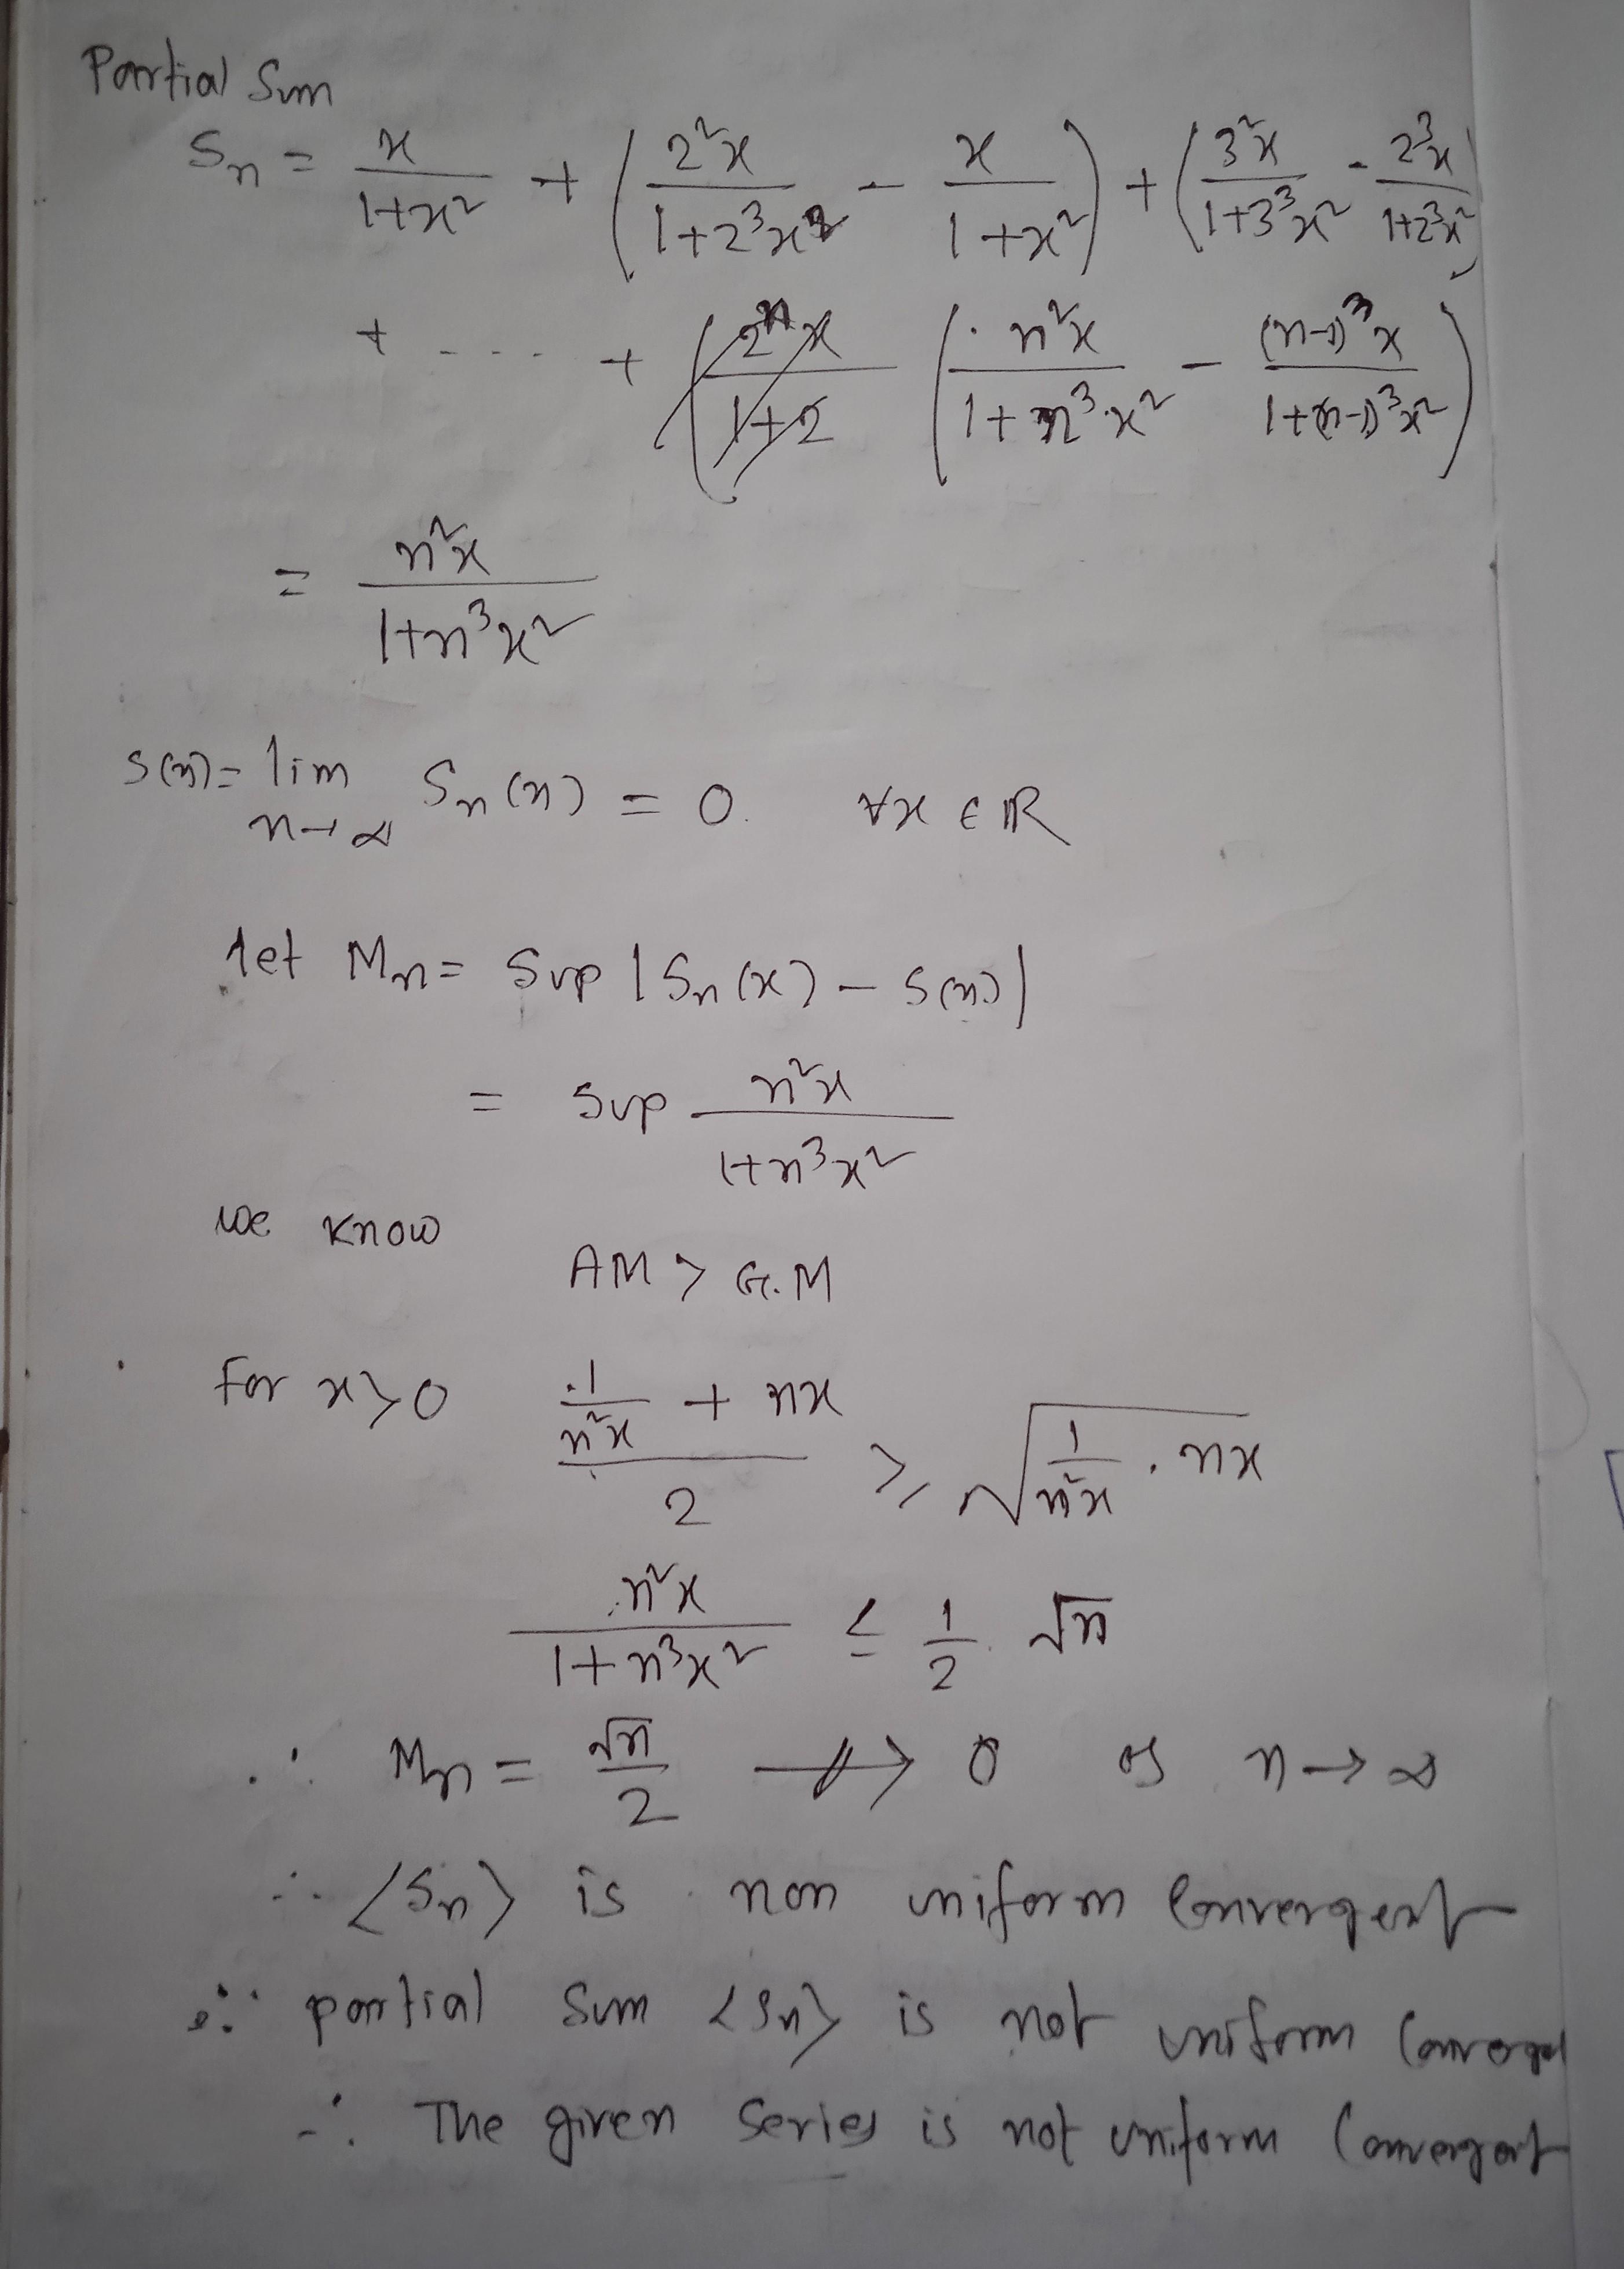 Partial Sum
Sn = x/(1+x²) + (2²x/(1+2³x²) - x/(1+x²)) + (3²x/(1+3³x²) - 2³x/(1+2³x²))
+ - - - - + (n²x/(1+n³x² ) - (n-1)³x/(1+(n-1)³x²))
= n²x/(1+n³x²)
S(x) = lim n→∞ Sn(x) = 0. ∀x ∈ IR
let Mn = Sup |Sn(x) - S(x)|
= Sup n²x/(1+n³x²)
we know
AM > G.M
For x>0 (1/(n²x) + nx)/2 ≥ √(1/(n²x) . nx)
n²x/(1+n³x²) ≤ 1/2 . √n
∴ Mn = √n/2 ↛ 0 as n→∞
∴ <Sn> is non uniform Convergent
∴ partial Sum <Sn> is not uniform Converget
∴ The given Series is not uniform Convergent